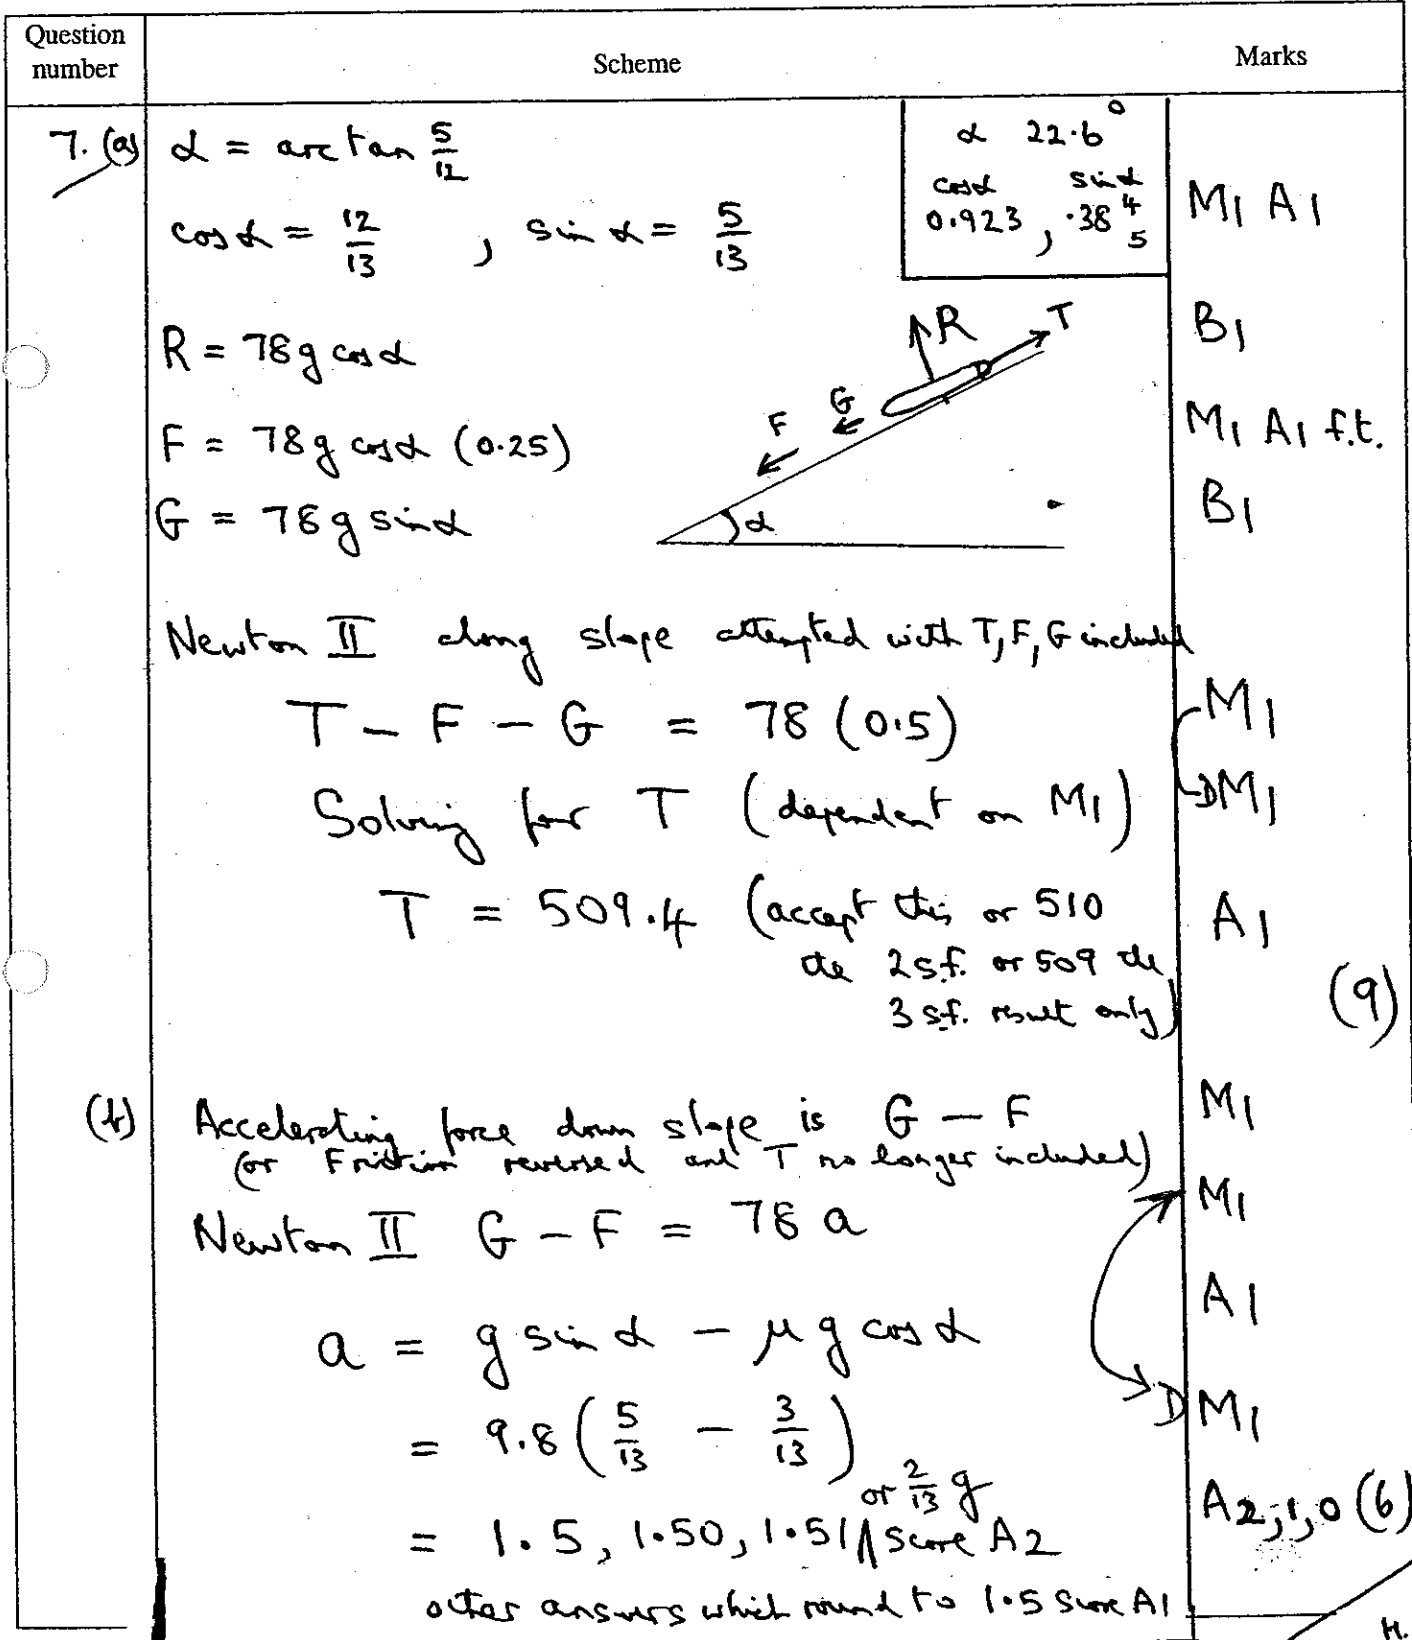 Question number
Scheme
Marks
7. (a) α = arc tan 5/12
α 22.6°
cosα sinα
0.923 , .38 4 5
M1 A1
cos α = 12/13 , sin α = 5/13
R = 78g cosα
B1
R T
F = 78g cosα (0.25)
F G
M1 A1 f.t.
G = 78g sinα
α
B1
Newton II along slope attempted with T, F, G included
T – F – G = 78 (0.5)
M1
Solving for T (dependent on M1)
DM1
T = 509.4 (accept this or 510
A1
the 2 s.f. or 509 the
3 s.f. result only)
(9)
(b) Accelerating force down slope is G – F
M1
(or Friction reversed and T no longer included)
Newton II G – F = 78 a
M1
A1
a = g sin α – μ g cos α
= 9.8 (5/13 – 3/13)
D M1
or 2/13 g
= 1.5, 1.50, 1.51 score A2
A2,1,0 (6)
other answers which round to 1.5 score A1
H.